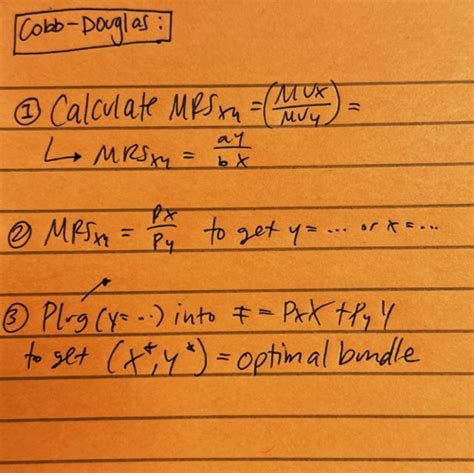 Cobb-Douglas:
① Calculate MRSxy = (MUx/MUy) =
↳ MRSxy = ay/bx
② MRSxy = Px/Py to get y = ... or x = ...
③ Plug (y = ..) into I = PxX + PyY
to get (x*, y*) = optimal bundle